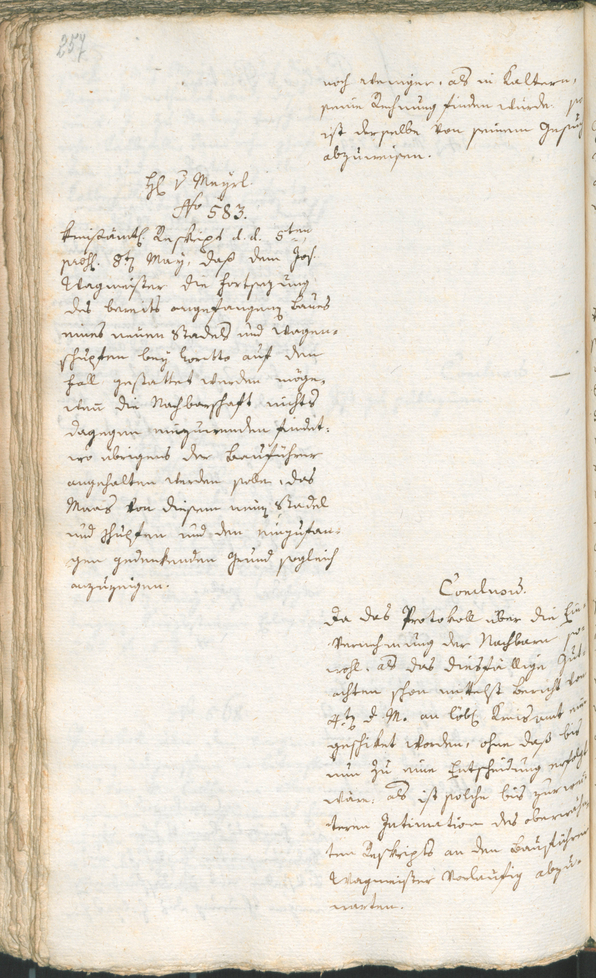 257
noch weniger, als in Kaltern,
seine Rechnung finden würde
ist derselbe von seinem Gesuch
abzuweisen.
H. v Mayrl.
No 583.
Kreisämtl. Reskript d. d. 5ten
präs. 8t May, daß dem Jos.
Wagmeister die Fortsezung
des bereits angefangenen Baues
eines neuen Stadels und Wagen-
schupfen bey Loretto auf den
Fall gestattet werden möge,
wenn die Nachbarschaft nichts
dagegen einzuwenden findet:
wo übrigens der Bauführer
angehalten werden solle, das
Maas von diesem neuen Stadel
und Schupfen und den einzufan-
gen gedenkenden Grund sogleich
anzuzeigen.
Conclusum.
Da das Protokoll über die Ein-
vernehmung der Nachbarn so-
wohl, als das diesfällige Gut-
achten schon mittelst Bericht von
d. M. an löbl. Kreisamt ein-
geschiket worden, ohne daß bis
nun zu eine Entscheidung erfolgt
wäre; als ist solche bis zur wei-
teren Intimation des oberwähn-
ten Reskripts an den Bauführer
Wagmeister vorläufig abzu-
warten.